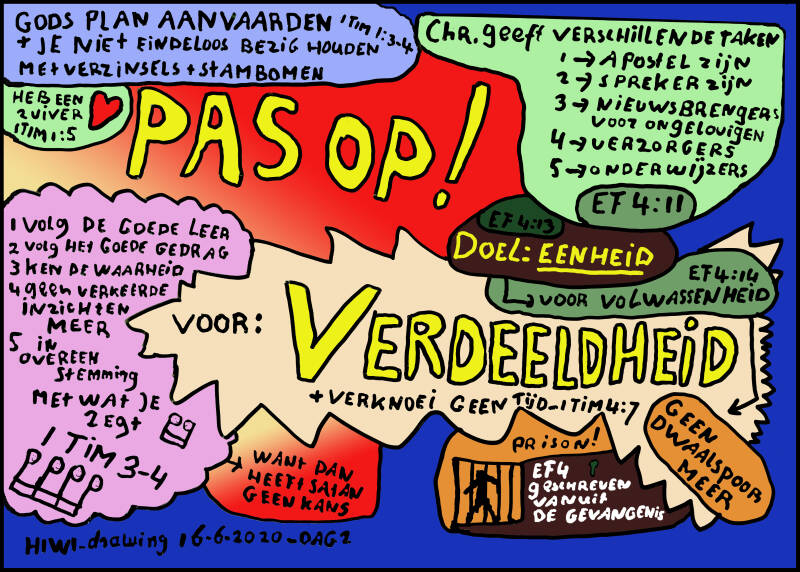 GODS PLAN AANVAARDEN 1TIM 1:3-4
+ JE NIET EINDELOOS BEZIG HOUDEN
MET VERZINSELS + STAMBOMEN
HEB EEN
ZUIVER
1TIM 1:5
PAS OP!
Chr. geeft VERSCHILLENDE TAKEN
1 → APOSTEL ZIJN
2 → SPREKER ZIJN
3 → NIEUWSBRENGERS
VOOR ONGELOVIGEN
4 → VERZORGERS
5 → ONDERWIJZERS
EF 4:11
EF 4:13
DOEL: EENHEID
EF 4:14
VOOR VOLWASSENHEID
1 VOLG DE GOEDE LEER
2 VOLG HET GOEDE GEDRAG
3 KEN DE WAARHEID
4 geen VERKEERDE
INZICHTEN
MEER
5 IN
OVEREEN
STEMMING
MET WAT JE
ZEGT
1 TIM 3-4
VOOR:
VERDEELDHEID
+ VERKNOEI GEEN TIJD_1TIM 4:7
GEEN
DWAALSPOOR
MEER
→ WANT DAN
HEEFT SATAN
GEEN KANS
PRISON!
EF4
geschreven
VANUIT
DE GEVANGENIS
HIWI-drawing 16-6-2020_DAG2